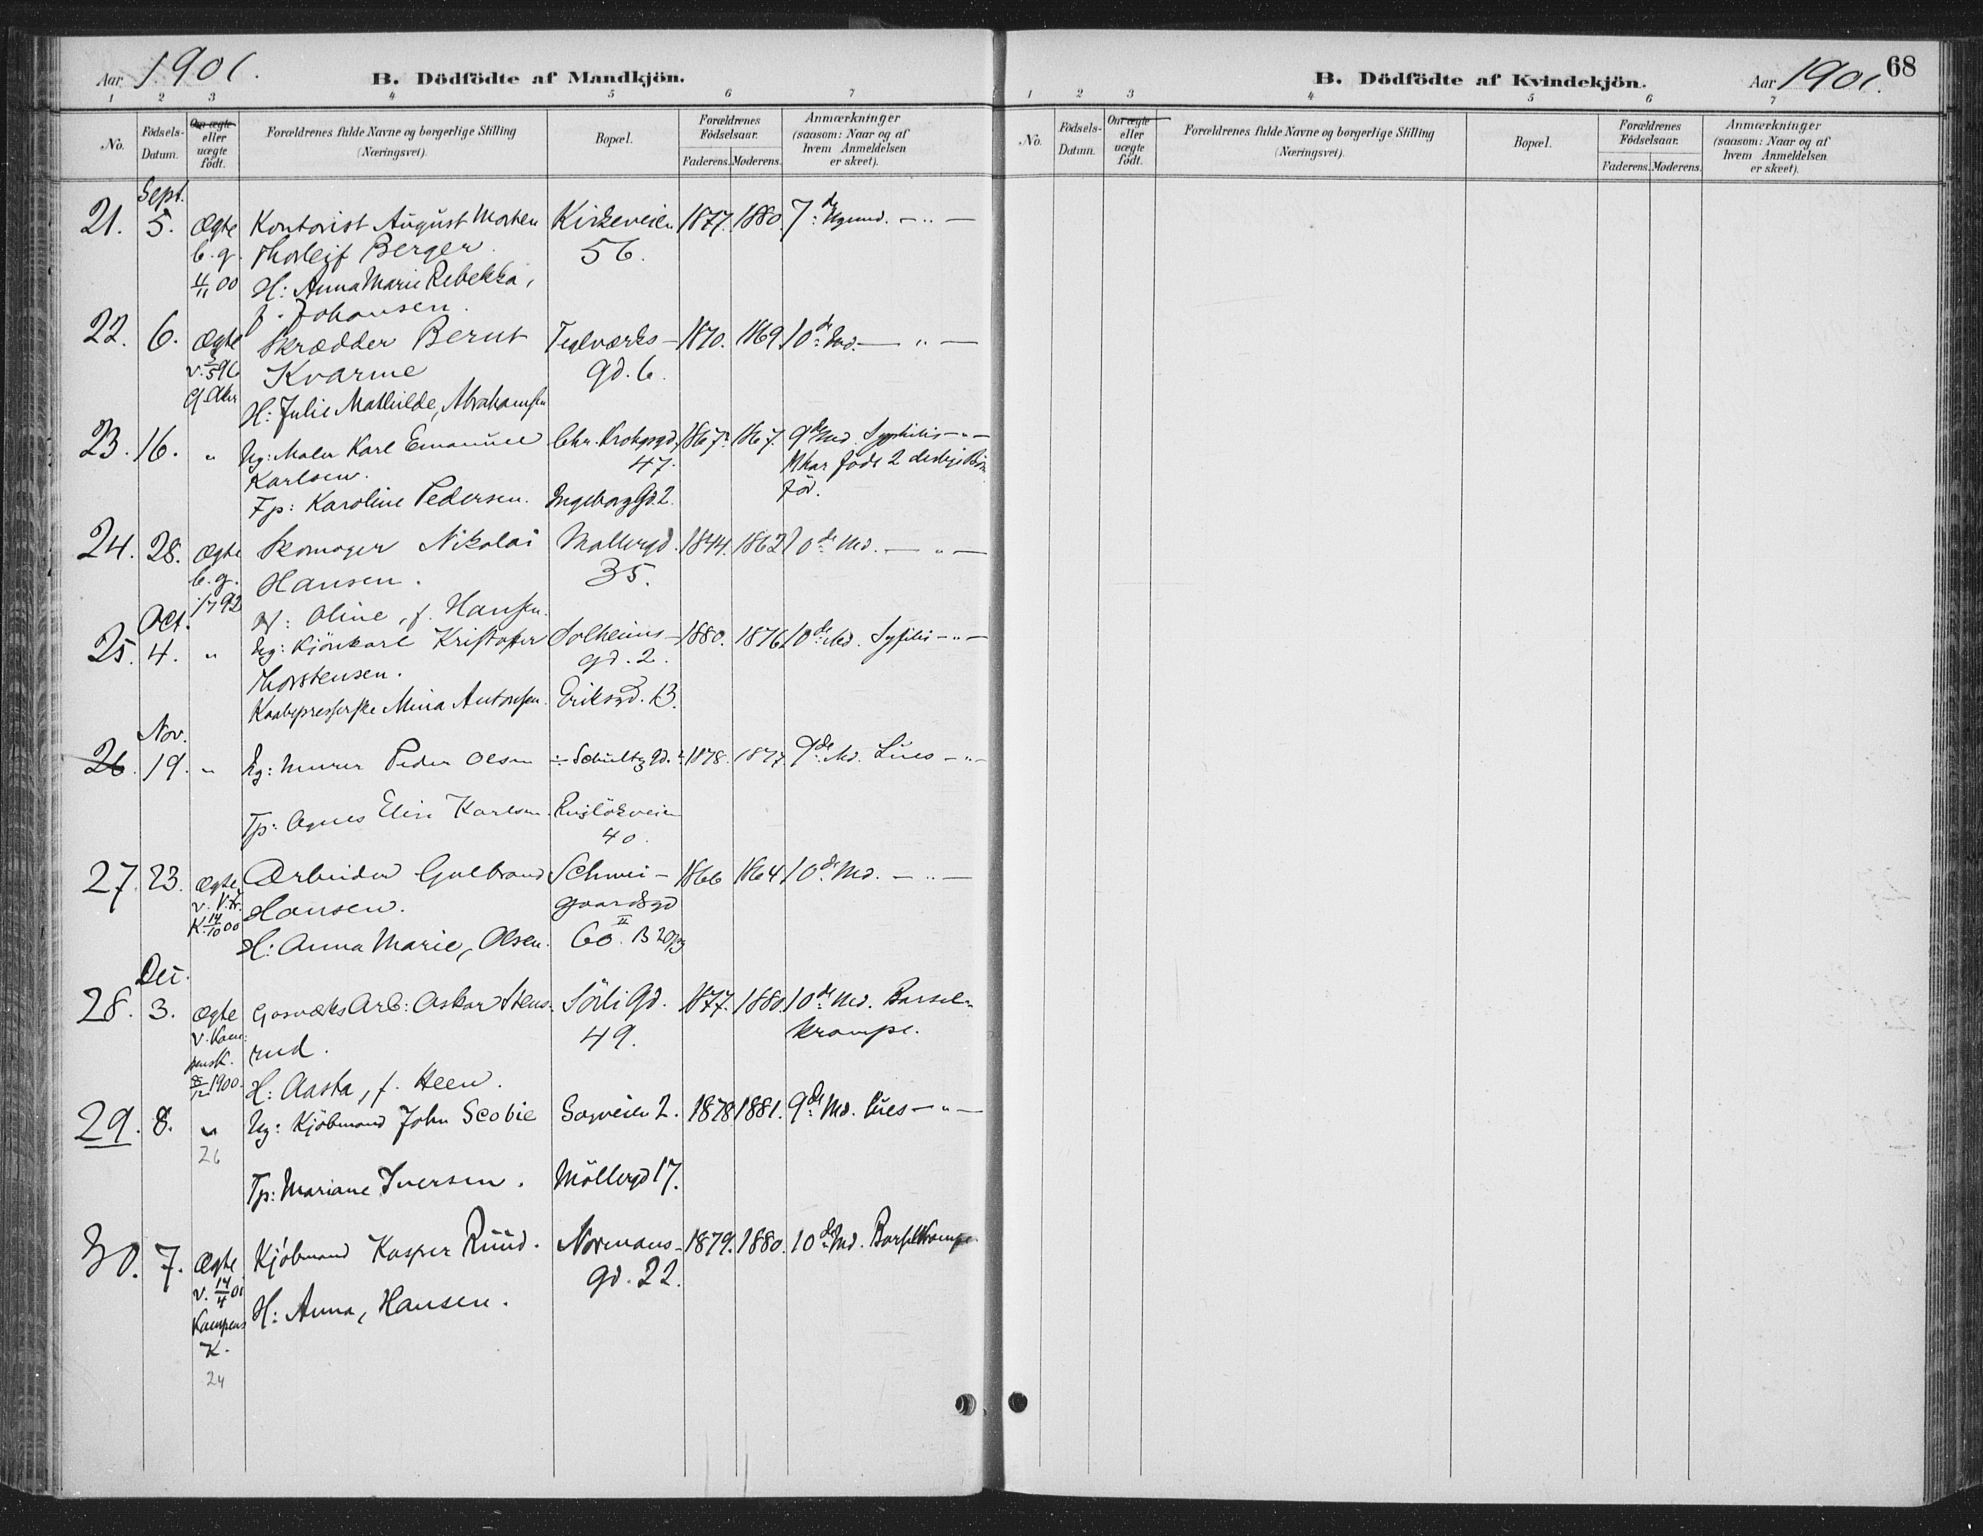 Aar 1901. B. Dödfödte af Mandkjön.
1 2 3 4 5 6 7
No. Födsels-Datum. Om ægte eller uægte födt. Forældrenes fulde Navne og borgerlige Stilling (Næringsvei). Bopæl. Forældrenes Födselsaar. Faderens. Moderens. Anmærkninger (saasom: Naar og af hvem Anmeldelsen er skeet).
Sept.
21. 5. Ægte Kontorist August Morten Kirkeveien 1877. 1880. 7de Mgmd. — „ —
b. g. Thorleif Berger 56.
4/11 00 H: Anna Marie Rebekka,
f. Johansen.
22. 6. Ægte Skrædder Bernt Teglværks- 1870. 1869. 10de Md. — „ —
v. 3/5 96 Kvarme gd. 6.
G. Aker H: Julie Mathilde, Abrahamsen
23. 16. „ Ug: Maler Karl Emanuel Chr. Krohgsgd. 1867. 1867. 9de Md. Syphilis — „ —
Karlsen. 47. M har födt 2 dödf. Börn
Fp: Karoline Pedersen. Ingeborg Gd. 2. för.
24. 28. Ægte Skomager Nikolai Möllergd. 1844. 1862 10de Md. — „ —
b. g. Hansen. 35.
1792 H: Oline, f. Hansen.
Oct.
25. 4. „ Ug: Kjörekarl Kristoffer Solheims- 1880. 1876. 10de Md. Syfilis — „ —
Thorstensen. gd. 2.
Kaabepresserske Mina Antonsen. Eriksgd. 13.
Nov.
26. 19. „ Ug: Murer Peder Olsen Schultz Gd. 1878. 1877. 9de Md. Lues — „ —
Tp: Agnes Elise Karlsen. Ruslökveien
40.
27. 23. Ægte Arbeider Gulbrand Schwei- 1866 1864 10de Md. — „ —
v. V. Kr. Hansen. gaardsgd
K. 14/10 00 H: Anna Marie, Olsen. 60. II B 20/3
Dec.
28. 3. Ægte Gasværks Arb: Oskar Stens- Sörli Gd. 1877. 1880. 10de Md. Barsel-
v. Kam- rud. 49. krampe.
pensK.
1900. H: Aasta, f. Heen.
29. 8. „ Ug: Kjöbmand John Scobie Sagveien 2. 1878 1881. 9de Md. Lues — „ —
26
Tp: Mariane Iversen. Möllergd 17.
30. 7. Ægte Kjöbmand Kasper Ruud. Normans- 1879. 1880. 10de Md. Barselkrampe
v. 14/4 01 H: Anna, Hansen. gd. 22.
Kampens
K.
24
B. Dödfödte af Kvindekjön. Aar 1901. 68
1 2 3 4 5 6 7
No. Födsels-Datum. Om ægte eller uægte födt. Forældrenes fulde Navne og borgerlige Stilling (Næringsvei). Bopæl. Forældrenes Födselsaar. Faderens. Moderens. Anmærkninger (saasom: Naar og af hvem Anmeldelsen er skeet).